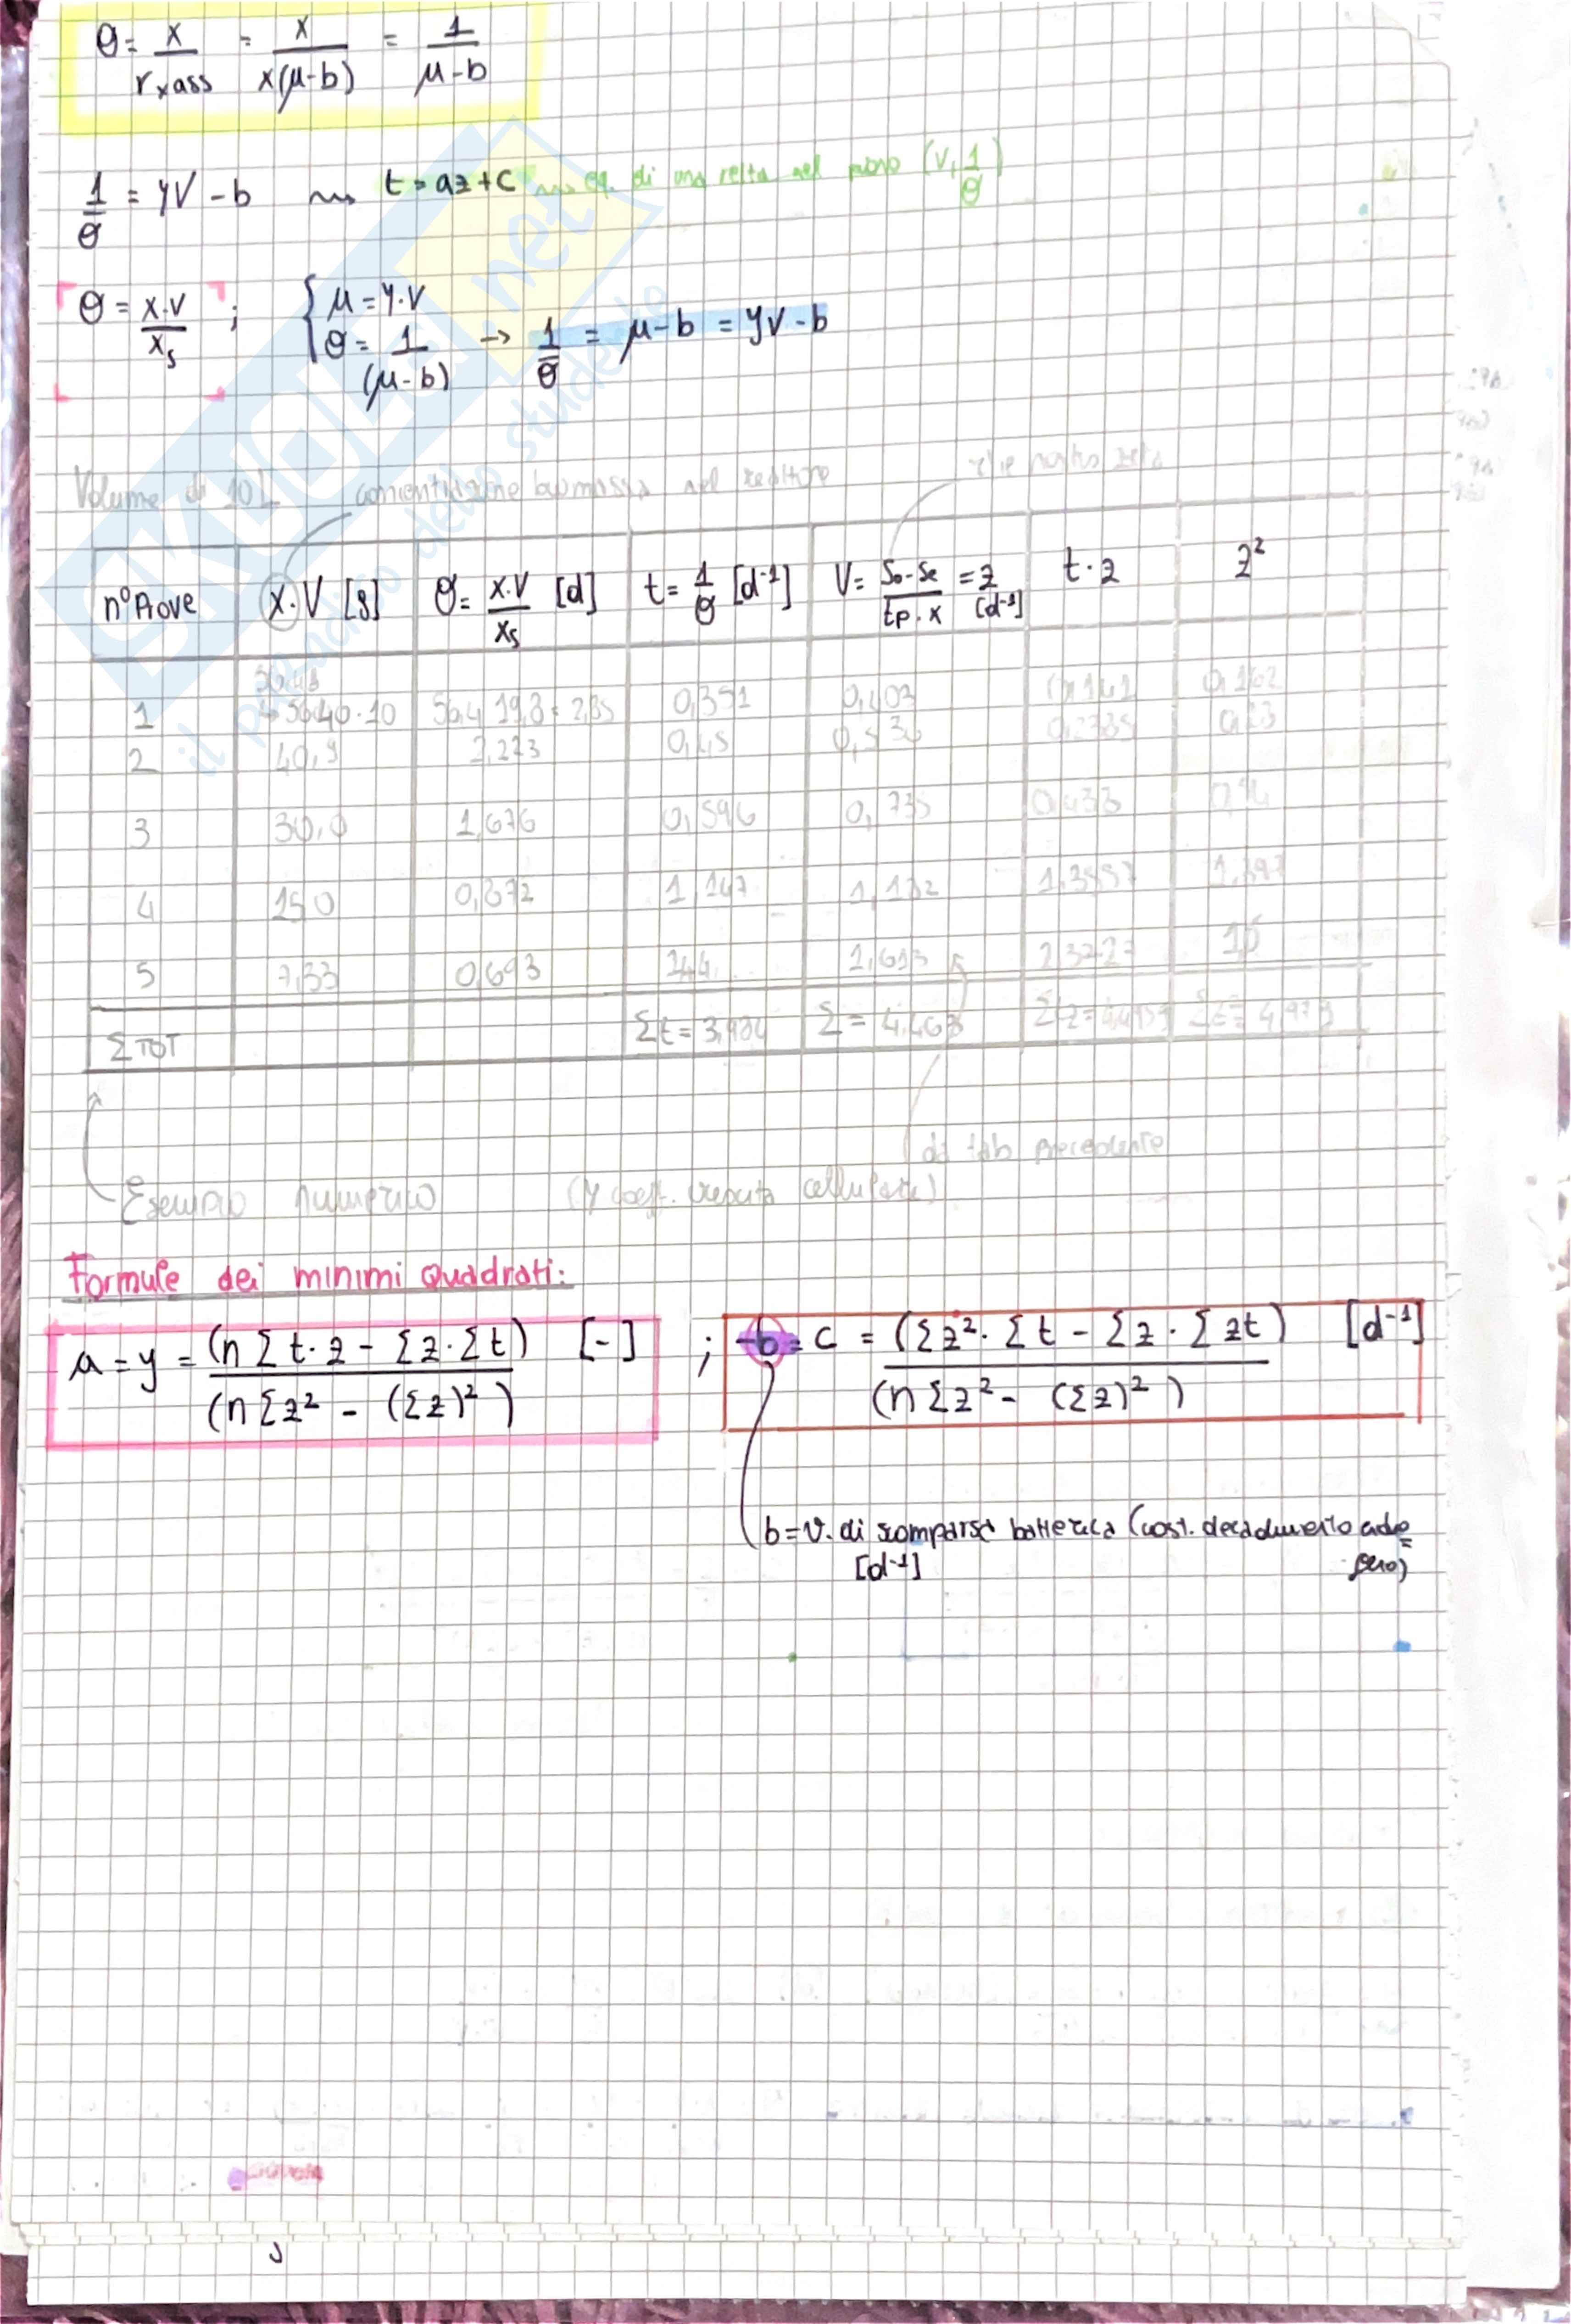 θ = x/(r_x ass) = x/(x(μ-b)) = 1/(μ-b)
1/θ = yV - b ⇝ t = az + c ⇝ eq. di una retta nel piano (V, 1/θ)
θ = x·V/x_s ; { μ = y·V
θ = 1/(μ-b) → 1/θ = μ-b = yV-b
Volume di 10L concentrazione biomassa nel reattore
nº Prove | x·V [g] | θ = x·V/x_s [d] | t = 1/θ [d⁻¹] | V = (So-Se)/(tp·x) = z [d⁻¹] | t·z | z²
1 | 5640·10 | 56,4 19,8 = 2,85 | 0,351 | 0,403 | 0,141 | 0,162
2 | 40,9 | 2,223 | 0,45 | 0,530 | 0,2385 | 0,28
3 | 30,0 | 1,676 | 0,596 | 0,735 | 0,438
4 | 150 | 0,872 | 1,147 | 1,182 | 1,3557 | 1,397
5 | 7,33 | 0,693 | 1,44 | 1,613 | 2,3227
Σ TOT | Σt = 3,984 | Σ = 4,463
da tab precedente
Esempio numerico (y coeff. crescita cellulare)
Formule dei minimi quadrati:
a = y = (n Σ t·z - Σz·Σt)/(n Σz² - (Σz)²) [-] ; -b = c = (Σz²·Σt - Σz·Σzt)/(n Σz² - (Σz)²) [d⁻¹]
b = v. di scomparsa batterica (cost. decadimento endo=
[d⁻¹] geno)
SKUOLA.net
il paradiso dello studente